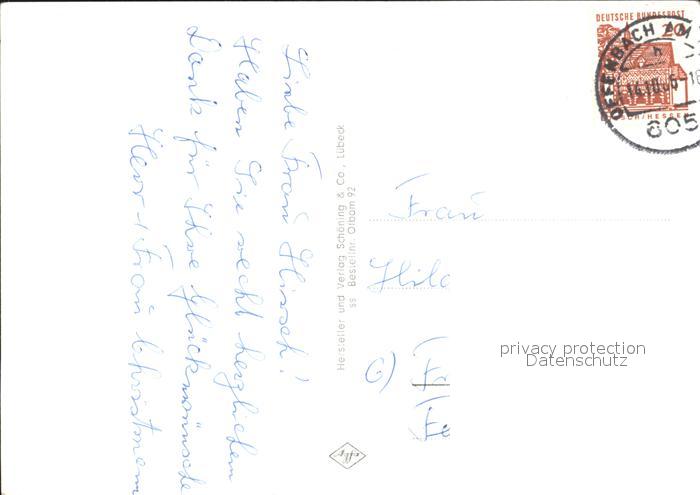 Liebe Frau Hirsch!
Haben Sie recht herzlichen
Dank für Ihre Glückwünsche
Herr + Frau Christmann
Hersteller und Verlag Schöning & Co., Lübeck
SS Bestellnr. Olbam 92
DEUTSCHE BUNDESPOST
20
LORSCH/HESSEN
OFFENBACH AM
605
Frau
Hild
privacy protection
Datenschutz